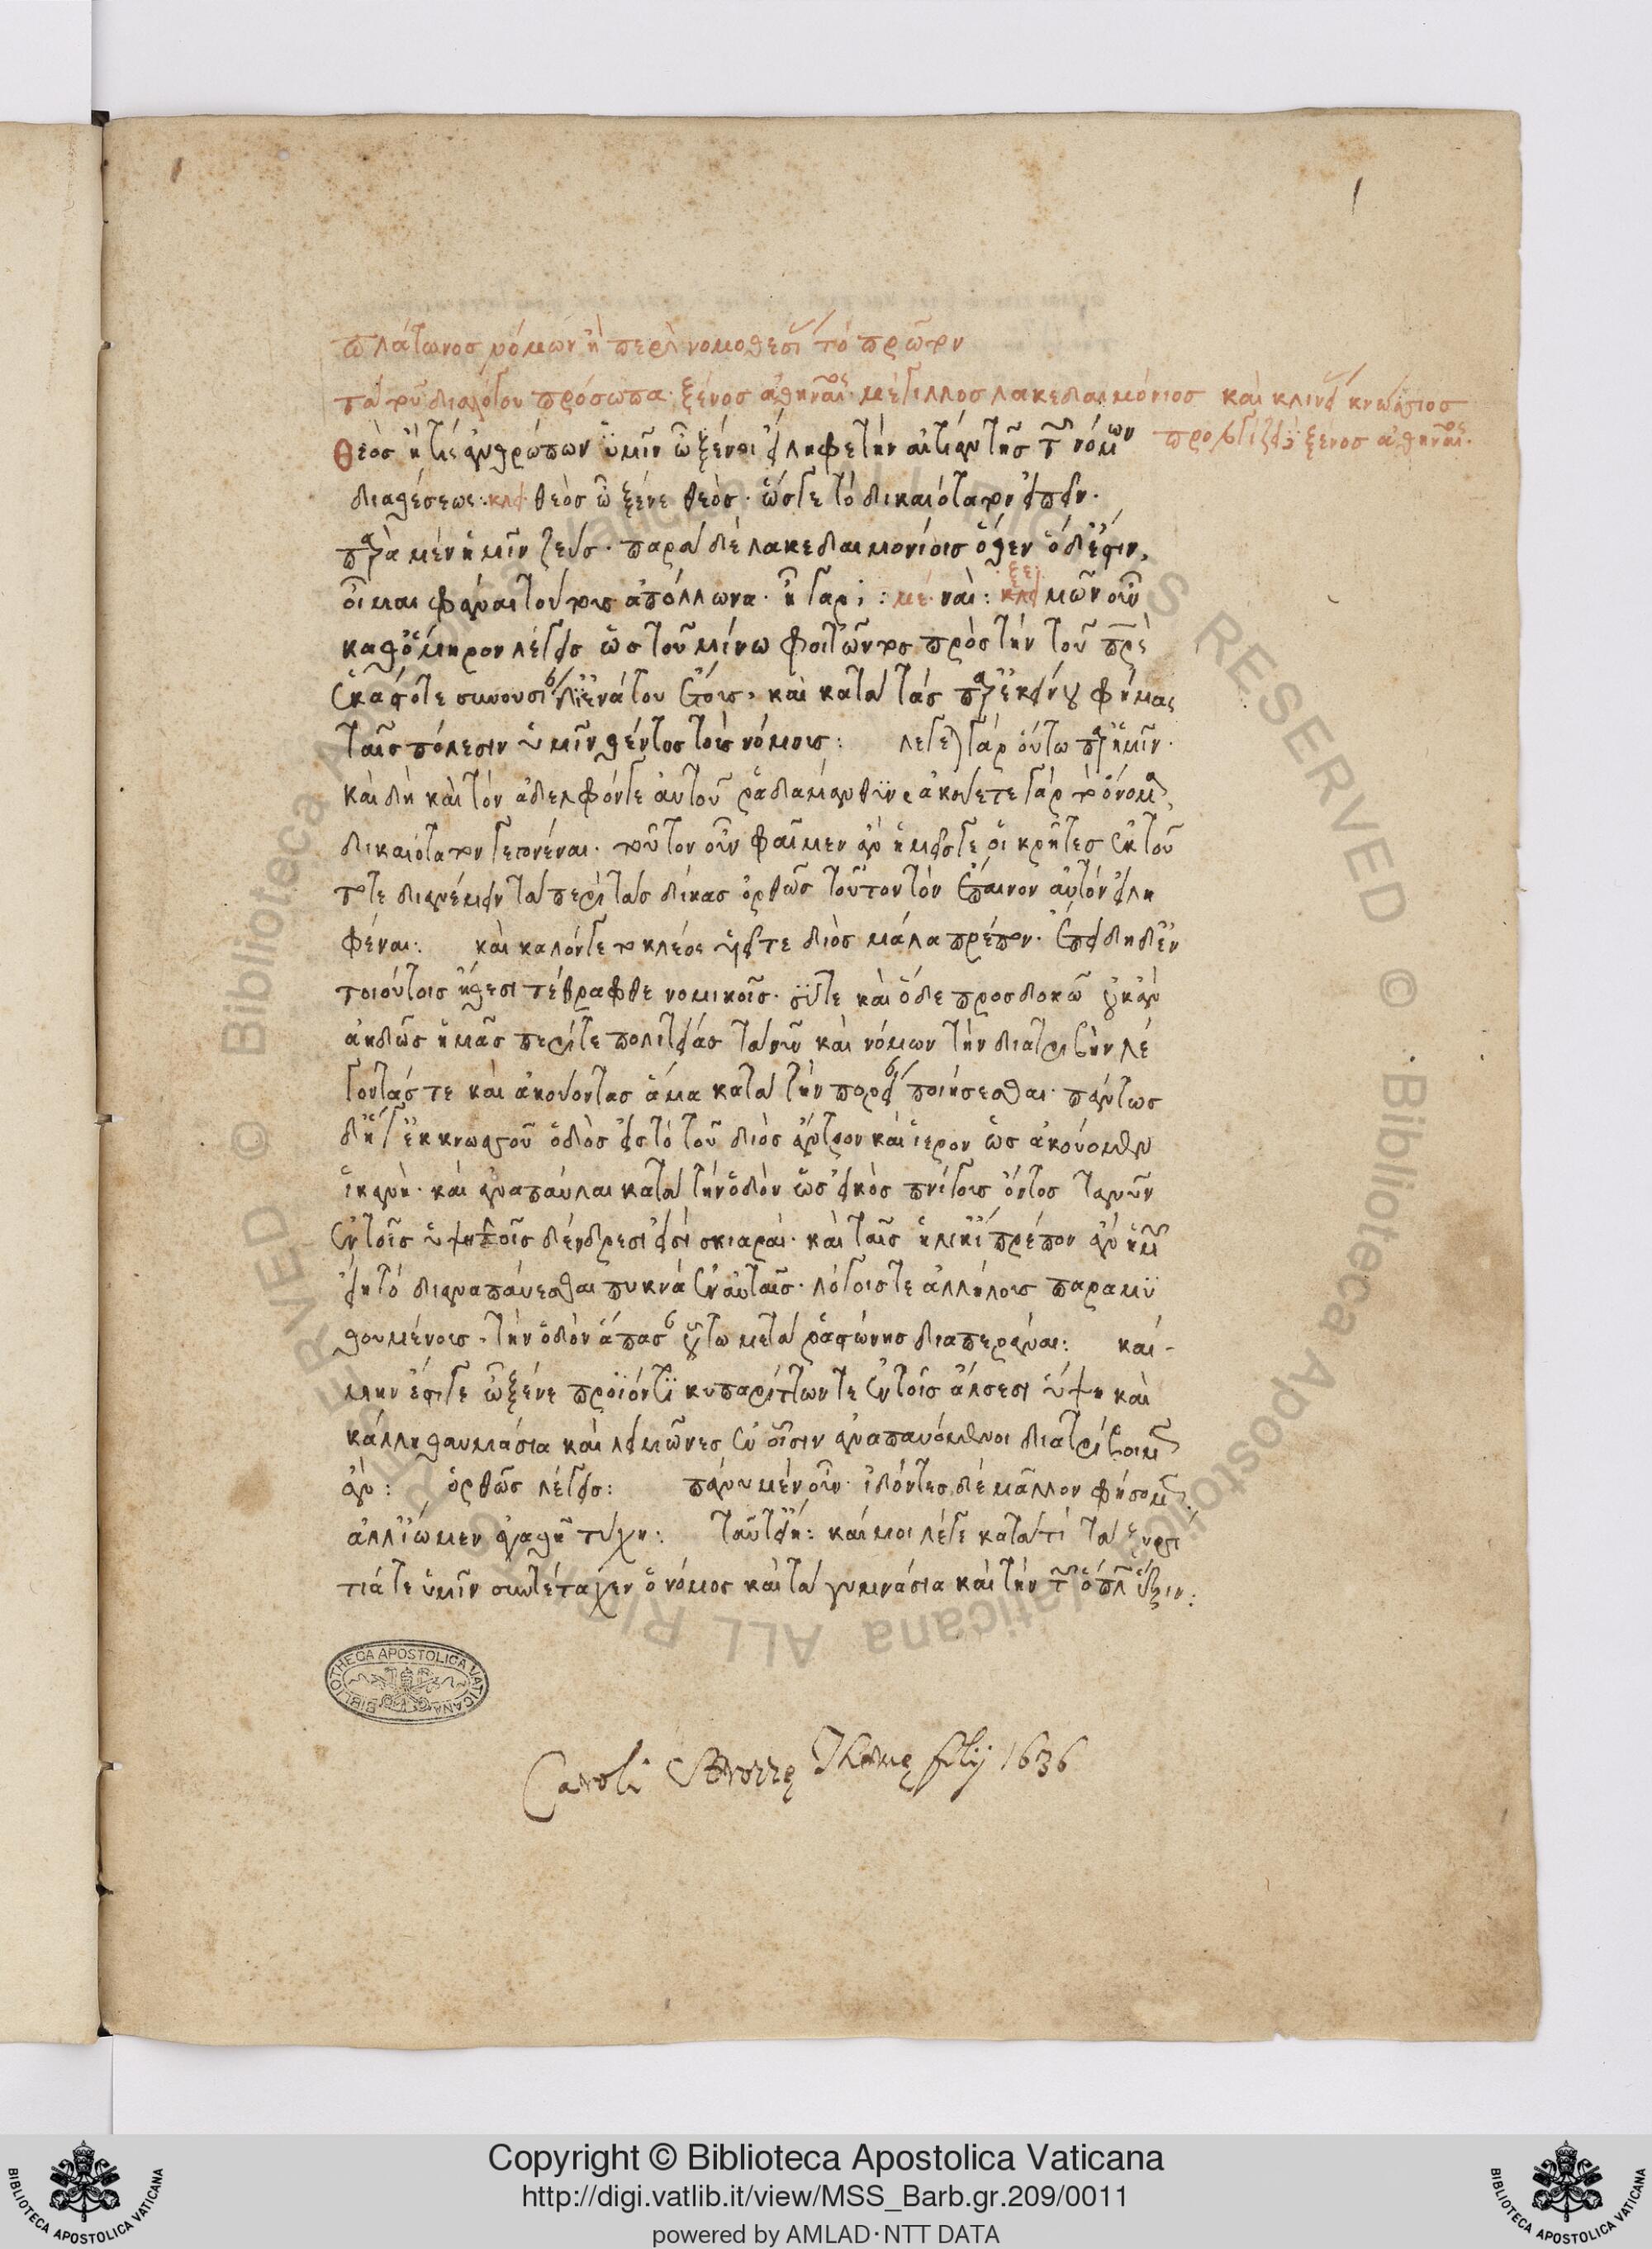 1
πλάτωνος νόμων ἢ περὶ νομοθεσίας τὸ πρῶτον
τὰ τοῦ διαλόγου πρόσωπα· ξένος ἀθηναῖος· μέγιλλος λακεδαιμόνιος καὶ κλινίας κνώσιος
Θεὸς ἤ τις ἀνθρώπων ὑμῖν ὦ ξένοι εἴληφε τὴν αἰτίαν τῆς τῶν νόμων
ξένος ἀθηναῖος·
διαθέσεως: κλει· θεὸς ὦ ξένε θεός· ὥς γε τὸ δικαιότατον εἰπεῖν·
παρὰ μὲν ἡμῖν ζεύς· παρὰ δὲ λακεδαιμονίοις ὅθεν ὅδ' ἐστιν,
ξε:
οἶμαι φάναι τούτους ἀπόλλωνα· ἢ γάρ; : με· ναί: κλει μῶν οὖν
καθ' ὅμηρον λέγεις ὡς τοῦ μίνω φοιτῶντος πρὸς τὴν τοῦ πατρὸς
ἑκάστοτε συνουσίαν δι' ἐνάτου ἔτους, καὶ κατὰ τὰς παρ' ἐκείνου φήμας
ταῖς πόλεσιν ὑμῖν θέντος τοὺς νόμους: λέγεται γὰρ οὕτω παρ' ἡμῖν·
καὶ δὴ καὶ τὸν ἀδελφόν γε αὐτοῦ ῥαδάμανθυν, ἀκούετε γὰρ τὸ ὄνομα,
δικαιότατον γεγονέναι· τοῦτον οὖν φαῖμεν ἂν ἡμεῖς γε οἱ κρῆτες ἐκ τοῦ
τότε διανέμειν τὰ περὶ τὰς δίκας ὀρθῶς τοῦτον τὸν ἔπαινον αὐτὸν εἰλη
φέναι: καὶ καλόν γε τὸ κλέος ὑεῖ τε διὸς μάλα πρέπον· ἐπειδὴ δὲ ἐν
τοιούτοις ἤθεσι τέθραφθε νομικοῖς· σύ τε καὶ ὅδε προσδοκῶ οὐκ ἂν
ἀηδῶς ἡμᾶς περί τε πολιτείας τανῦν καὶ νόμων τὴν διατριβὴν λέ
γοντάς τε καὶ ἀκούοντας ἅμα κατὰ τὴν πορείαν ποιήσεσθαι· πάντως
δ' ἥ γε ἐκ κνωσσοῦ ὁδὸς εἰς τὸ τοῦ διὸς ἄντρον καὶ ἱερὸν ὡς ἀκούομεν
ἱκανή· καὶ ἀνάπαυλαι κατὰ τὴν ὁδὸν ὡς εἰκὸς πνίγους ὄντος τανῦν
ἐν τοῖς ὑψηλοῖς δένδρεσι εἰσὶ σκιαραί· καὶ ταῖς ἡλικίαις πρέπον ἂν ἡμῶν
εἴη τὸ διαναπαύεσθαι πυκνὰ ἐν αὐταῖς· λόγοις τε ἀλλήλους παραμυ
θουμένους. τὴν ὁδὸν ἅπασαν οὕτω μετὰ ῥαστώνης διαπερᾶναι: καί
μὴν ἔστι γε ὦ ξένε προϊόντι κυπαρίττων τε ἐν τοῖς ἄλσεσι ὕψη καὶ
κάλλη θαυμάσια καὶ λειμῶνες ἐν οἷσιν ἀναπαυόμενοι διατρίβοιμεν
ἄν: ὀρθῶς λέγεις: πάνυ μὲν οὖν· ἰδόντες δὲ μᾶλλον φήσομεν·
ἀλλ' ἴωμεν ἀγαθῇ τύχῃ: ταῦτ' εἴη: καί μοι λέγε κατὰ τί τὰ ξυσσί
τιά τε ὑμῖν συντέταχεν ὁ νόμος καὶ τὰ γυμνάσια καὶ τὴν τῶν ὅπλων ἕξιν:
BIBLIOTHECA APOSTOLICA VATICANA
Caroli Strozzę Thomę filij 1636
Copyright © Biblioteca Apostolica Vaticana
http://digi.vatlib.it/view/MSS_Barb.gr.209/0011
powered by AMLAD·NTT DATA